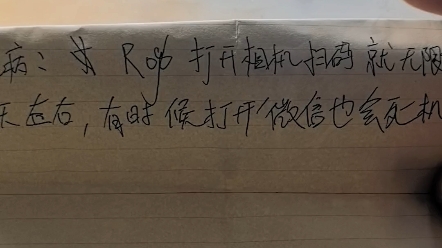 病： R 打开相机扫码 就无限
天左右，有时候打开微信也会死机